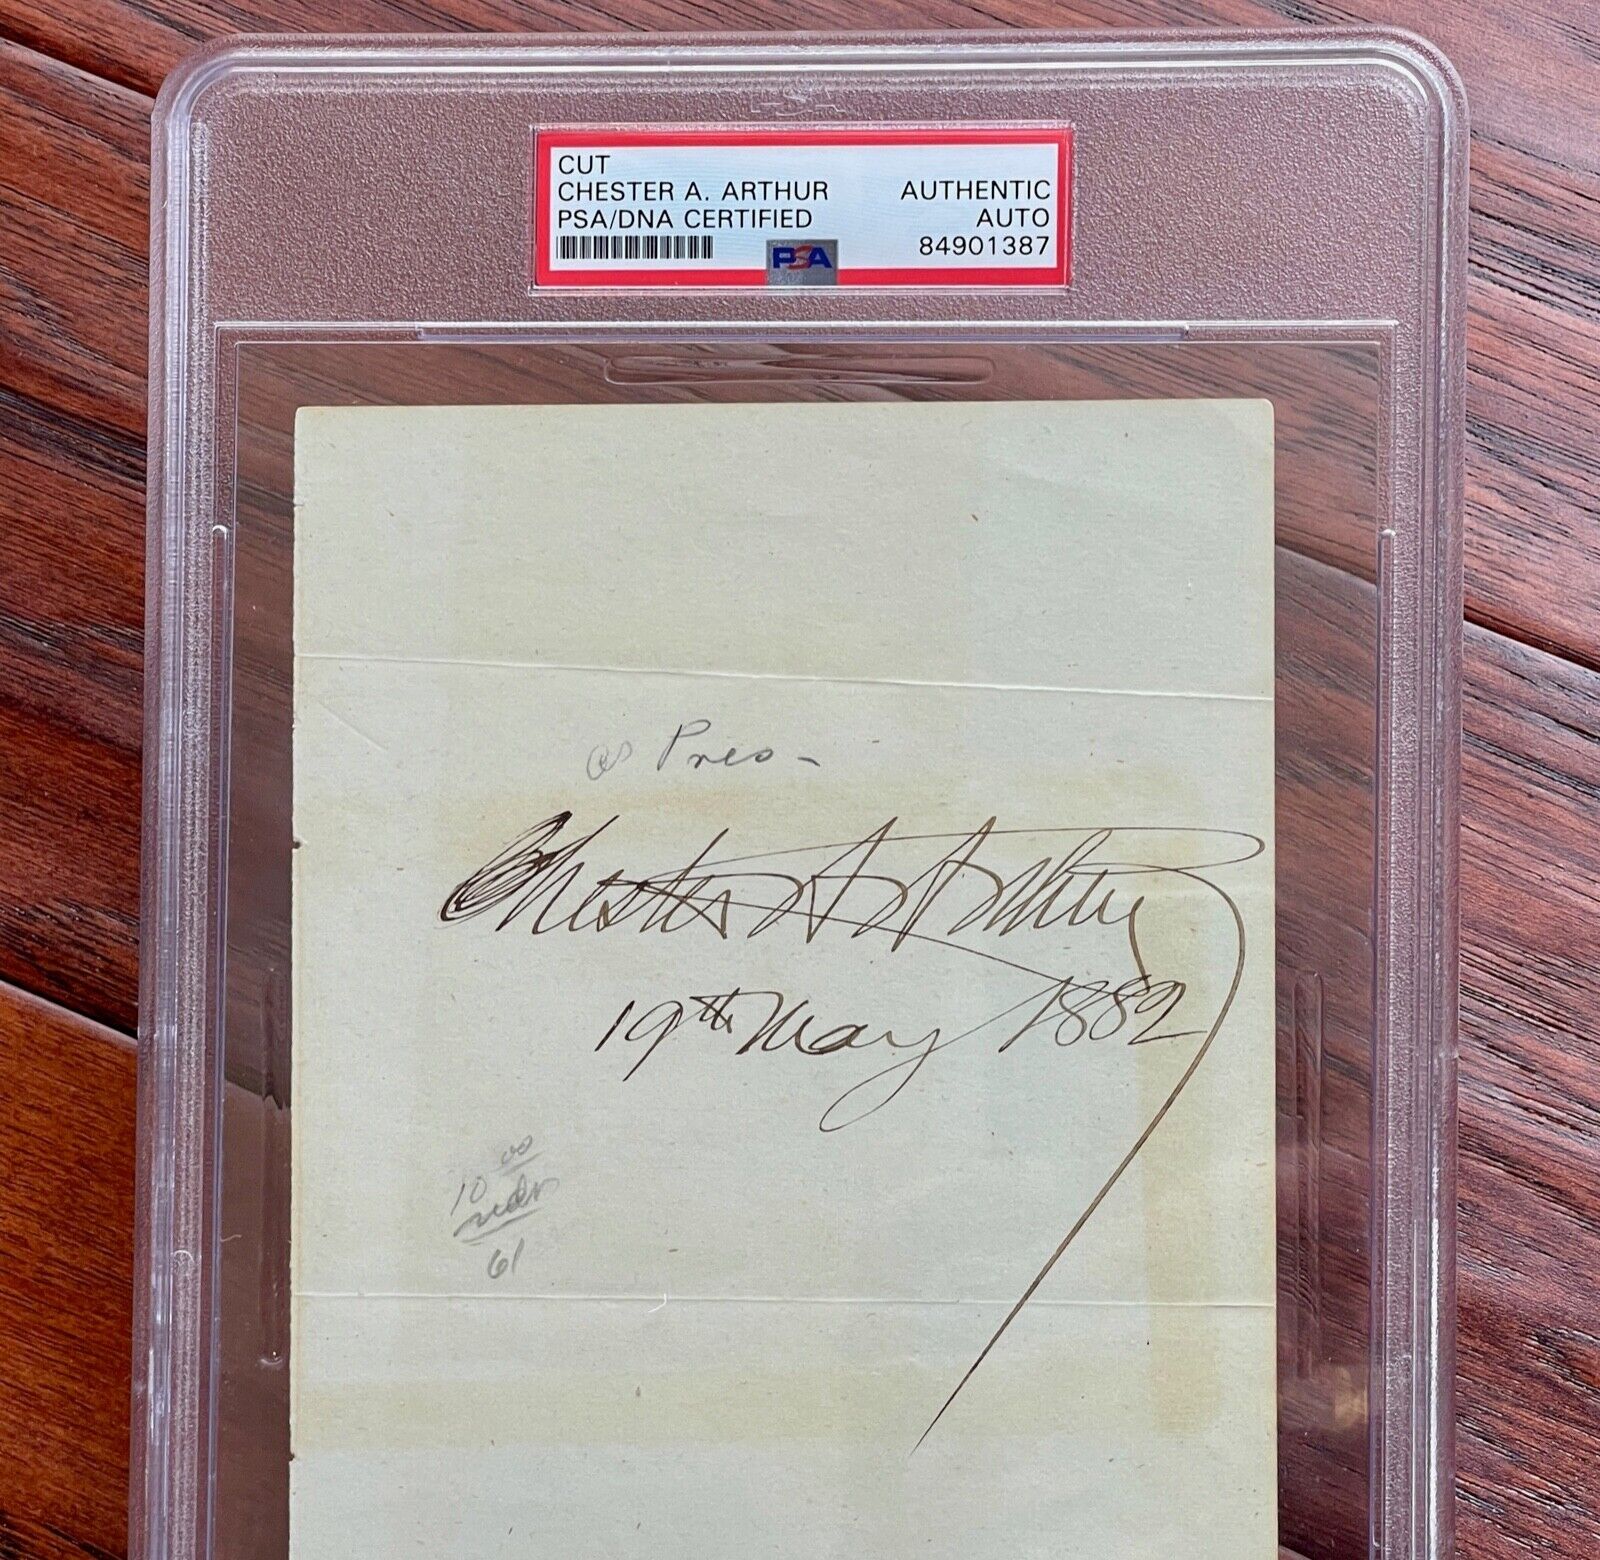 CUT
CHESTER A. ARTHUR AUTHENTIC
PSA/DNA CERTIFIED AUTO
84901387
PSA
as Pres -
Chester A Arthur
19th May 1882
10 00
61